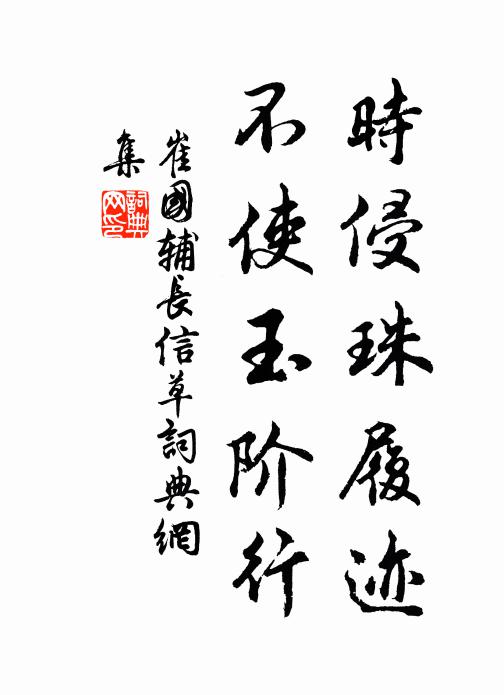 時侵珠履迹
不使玉阶行
崔國輔長信草詞典網
集
詞典
网印